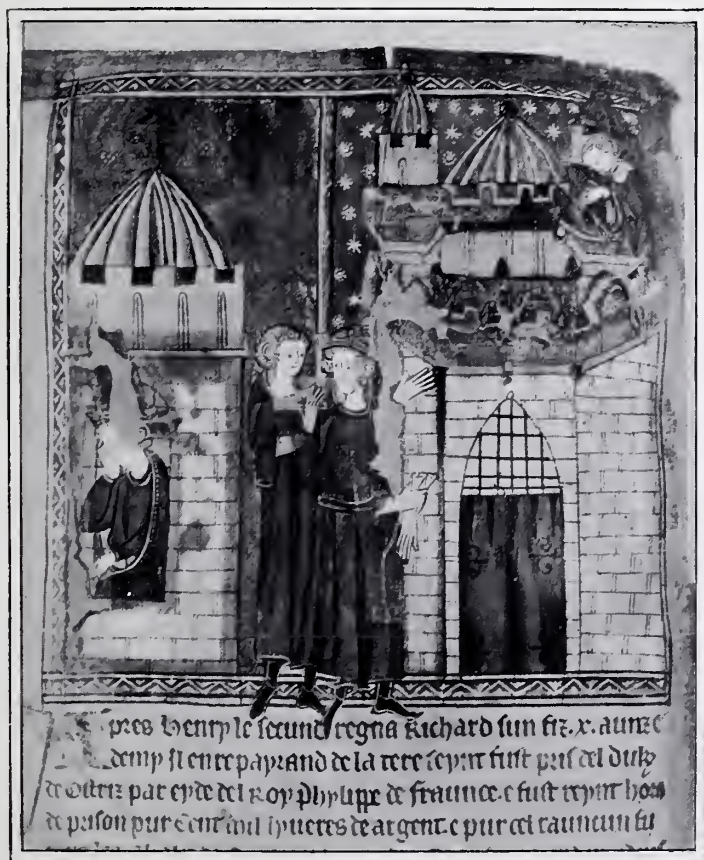 pres Henry le secund regna Richard sun fiz .x. aunz e
demy si en repayrand de la tere seynt fust pris del duk
de Ostriz par eyde del Roy Phylippe de fraunce. e fust reynt hors
de prison pur Cent mil lyveres de argent. e pur cel rauncun fu